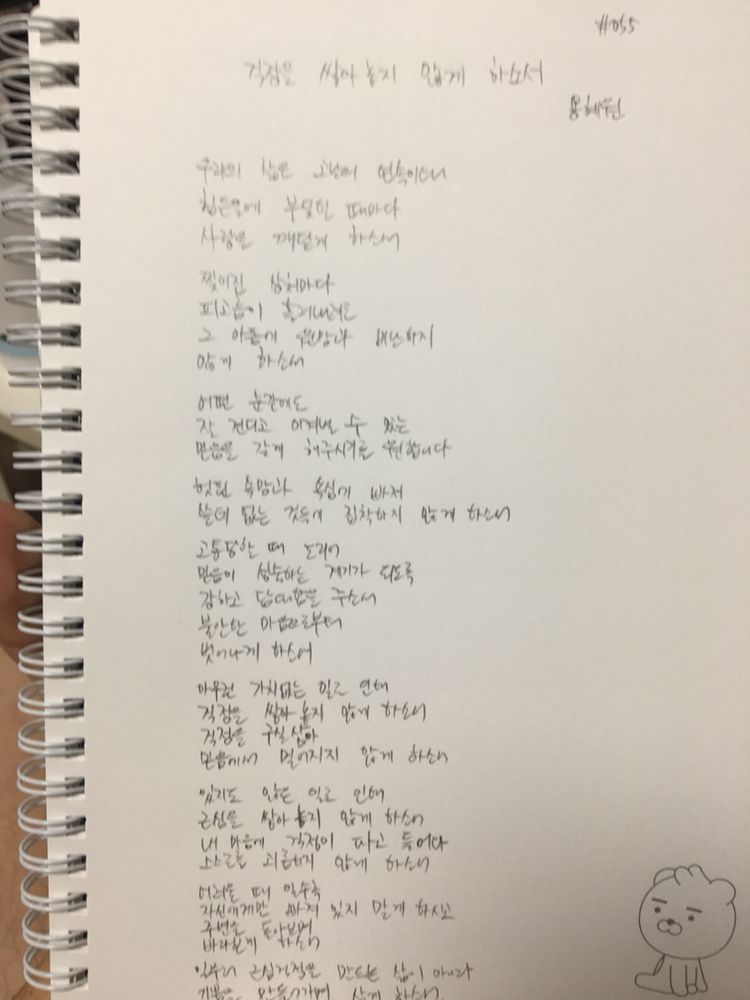 #055
걱정을 쌓아 놓지 않게 하소서
용혜원
우리의 삶은 고난의 연속이오니
힘든일에 부딪힐 때마다
사랑을 깨닫게 하소서
찢어진 상처마다
피고름이 흘러내려도
그 아픔에 원망과 비난하지
않게 하소서
어떤 순간에도
잘 견디고 이겨낼 수 있는
믿음을 갖게 해주시기를 원합니다
헛된 욕망과 욕심에 빠져
쓸데 없는 것들에 집착하지 않게 하소서
고통당할 때 도리어
믿음이 성숙하는 계기가 되도록
강하고 담대함을 주소서
불안한 마음으로부터
벗어나게 하소서
아무런 가치없는 일로 인해
걱정을 쌓아 놓지 않게 하소서
걱정을 구실삼아
믿음에서 멀어지지 않게 하소서
있지도 않은 일로 인해
근심을 쌓아 놓지 않게 하소서
내 마음에 걱정이 파고 들어와
스스로 괴롭히지 않게 하소서
어려울 때 일수록
자신에게만 빠져 있지 말게 하시고
주변을 돌아보며
바라보게 하소서
일부러 근심걱정을 만드는 삶이 아니라
기쁨을 만들어가며 살게 하소서